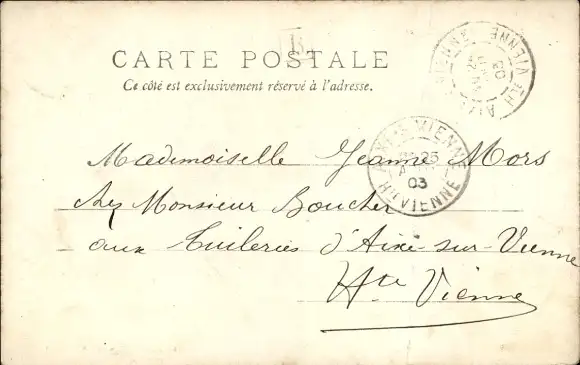 CARTE POSTALE
Ce côté est exclusivement réservé à l'adresse.
VIENNE
03
VIENNE
03
HTE VIENNE
Mademoiselle Jeanne Mors
chez Monsieur Boucher
aux Tuileries d'Aixe-sur-Vienne
Hte Vienne